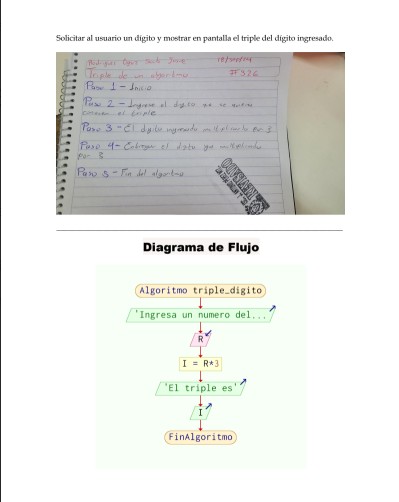 Solicitar al usuario un dígito y mostrar en pantalla el triple del dígito ingresado.
Triple de un algoritmo
#326
Paso 1 - Inicio
Paso 2 - Ingrese el digito que se quiere
conocer el triple
Paso 3 - El digito ingresado multiplicarlo por 3
Paso 4 - Entregar el digito ya multiplicado
por 3
Paso 5 - Fin del algoritmo
Diagrama de Flujo
Algoritmo triple_digito
'Ingresa un numero del...
R
I = R*3
'El triple es'
I
FinAlgoritmo